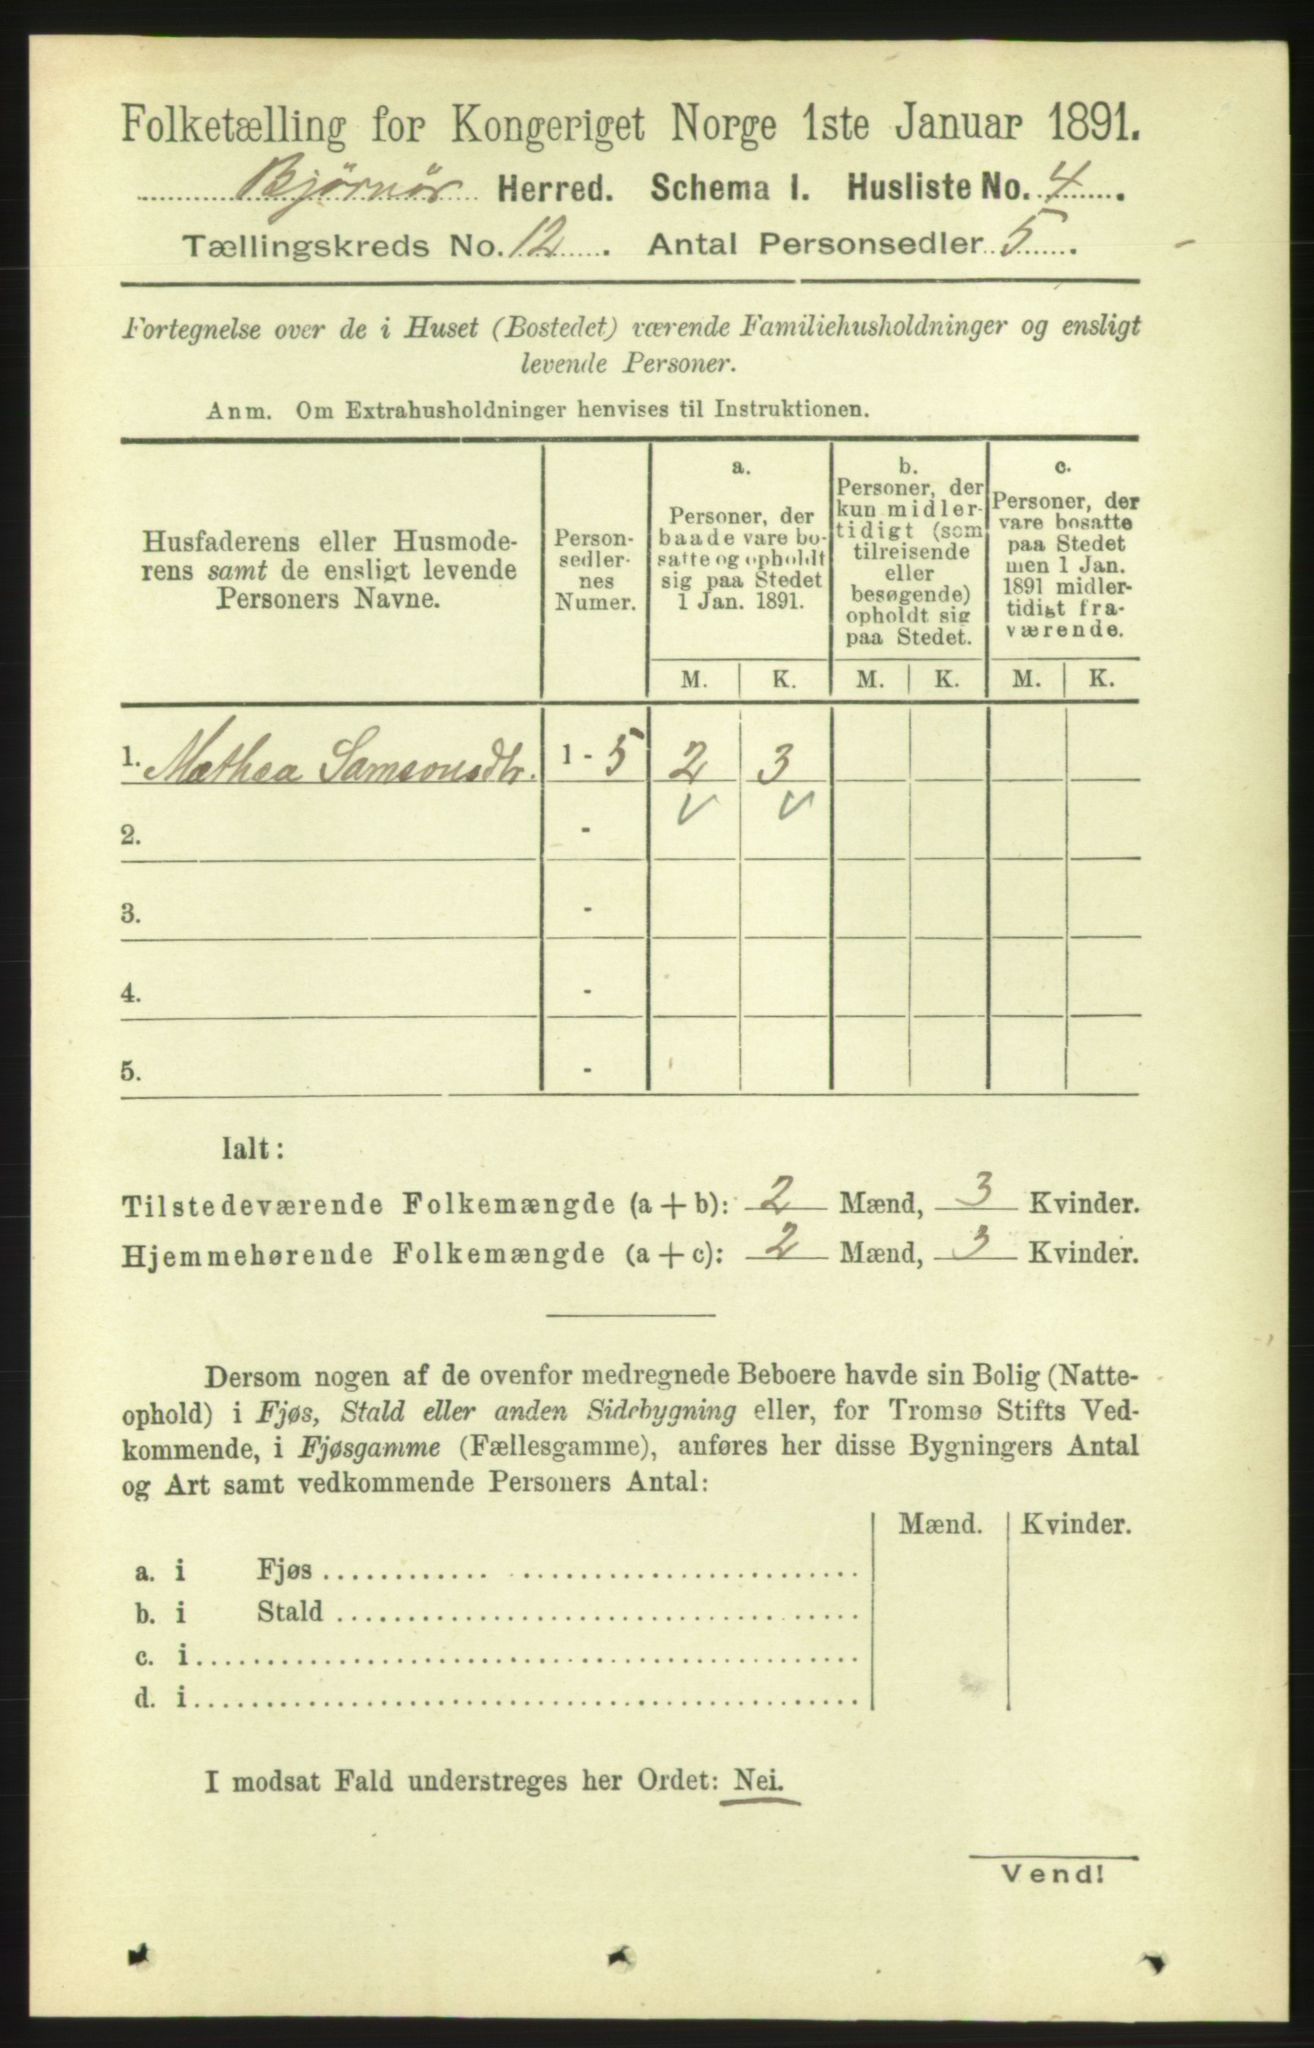 Folketælling for Kongeriget Norge 1ste Januar 1891.
Bjørnør Herred. Schema I. Husliste No. 4.
Tællingskreds No. 12. Antal Personsedler 5.
Fortegnelse over de i Huset (Bostedet) værende Familiehusholdninger og ensligt
levende Personer.
Anm. Om Extrahusholdninger henvises til Instruktionen.
Husfaderens eller Husmode-
rens samt de ensligt levende
Personers Navne.
Person-
sedler-
nes
Numer.
a.
Personer, der
baade vare bo-
satte og opholdt
sig paa Stedet
1 Jan. 1891.
b.
Personer, der
kun midler-
tidigt (som
tilreisende
eller
besøgende)
opholdt sig
paa Stedet.
c.
Personer, der
vare bosatte
paa Stedet
men 1 Jan.
1891 midler-
tidigt fra-
værende.
M. K. M. K. M. K.
1. Mathea Samsonsdtr. 1 - 5 2 3
2. - v v
3. -
4. -
5. -
Ialt:
Tilstedeværende Folkemængde (a + b): 2 Mænd, 3 Kvinder.
Hjemmehørende Folkemængde (a + c): 2 Mænd, 3 Kvinder.
Dersom nogen af de ovenfor medregnede Beboere havde sin Bolig (Natte-
ophold) i Fjøs, Stald eller anden Sidebygning eller, for Tromsø Stifts Ved-
kommende, i Fjøsgamme (Fællesgamme), anføres her disse Bygningers Antal
og Art samt vedkommende Personers Antal:
Mænd. Kvinder.
a. i Fjøs
b. i Stald
c. i
d. i
I modsat Fald understreges her Ordet: Nei.
Vend!